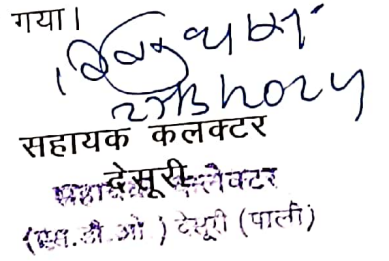 गया।
सहायक कलक्टर
देसूरी
सहायक कलेक्टर
(एस.डी.ओ.) देसूरी (पाली)